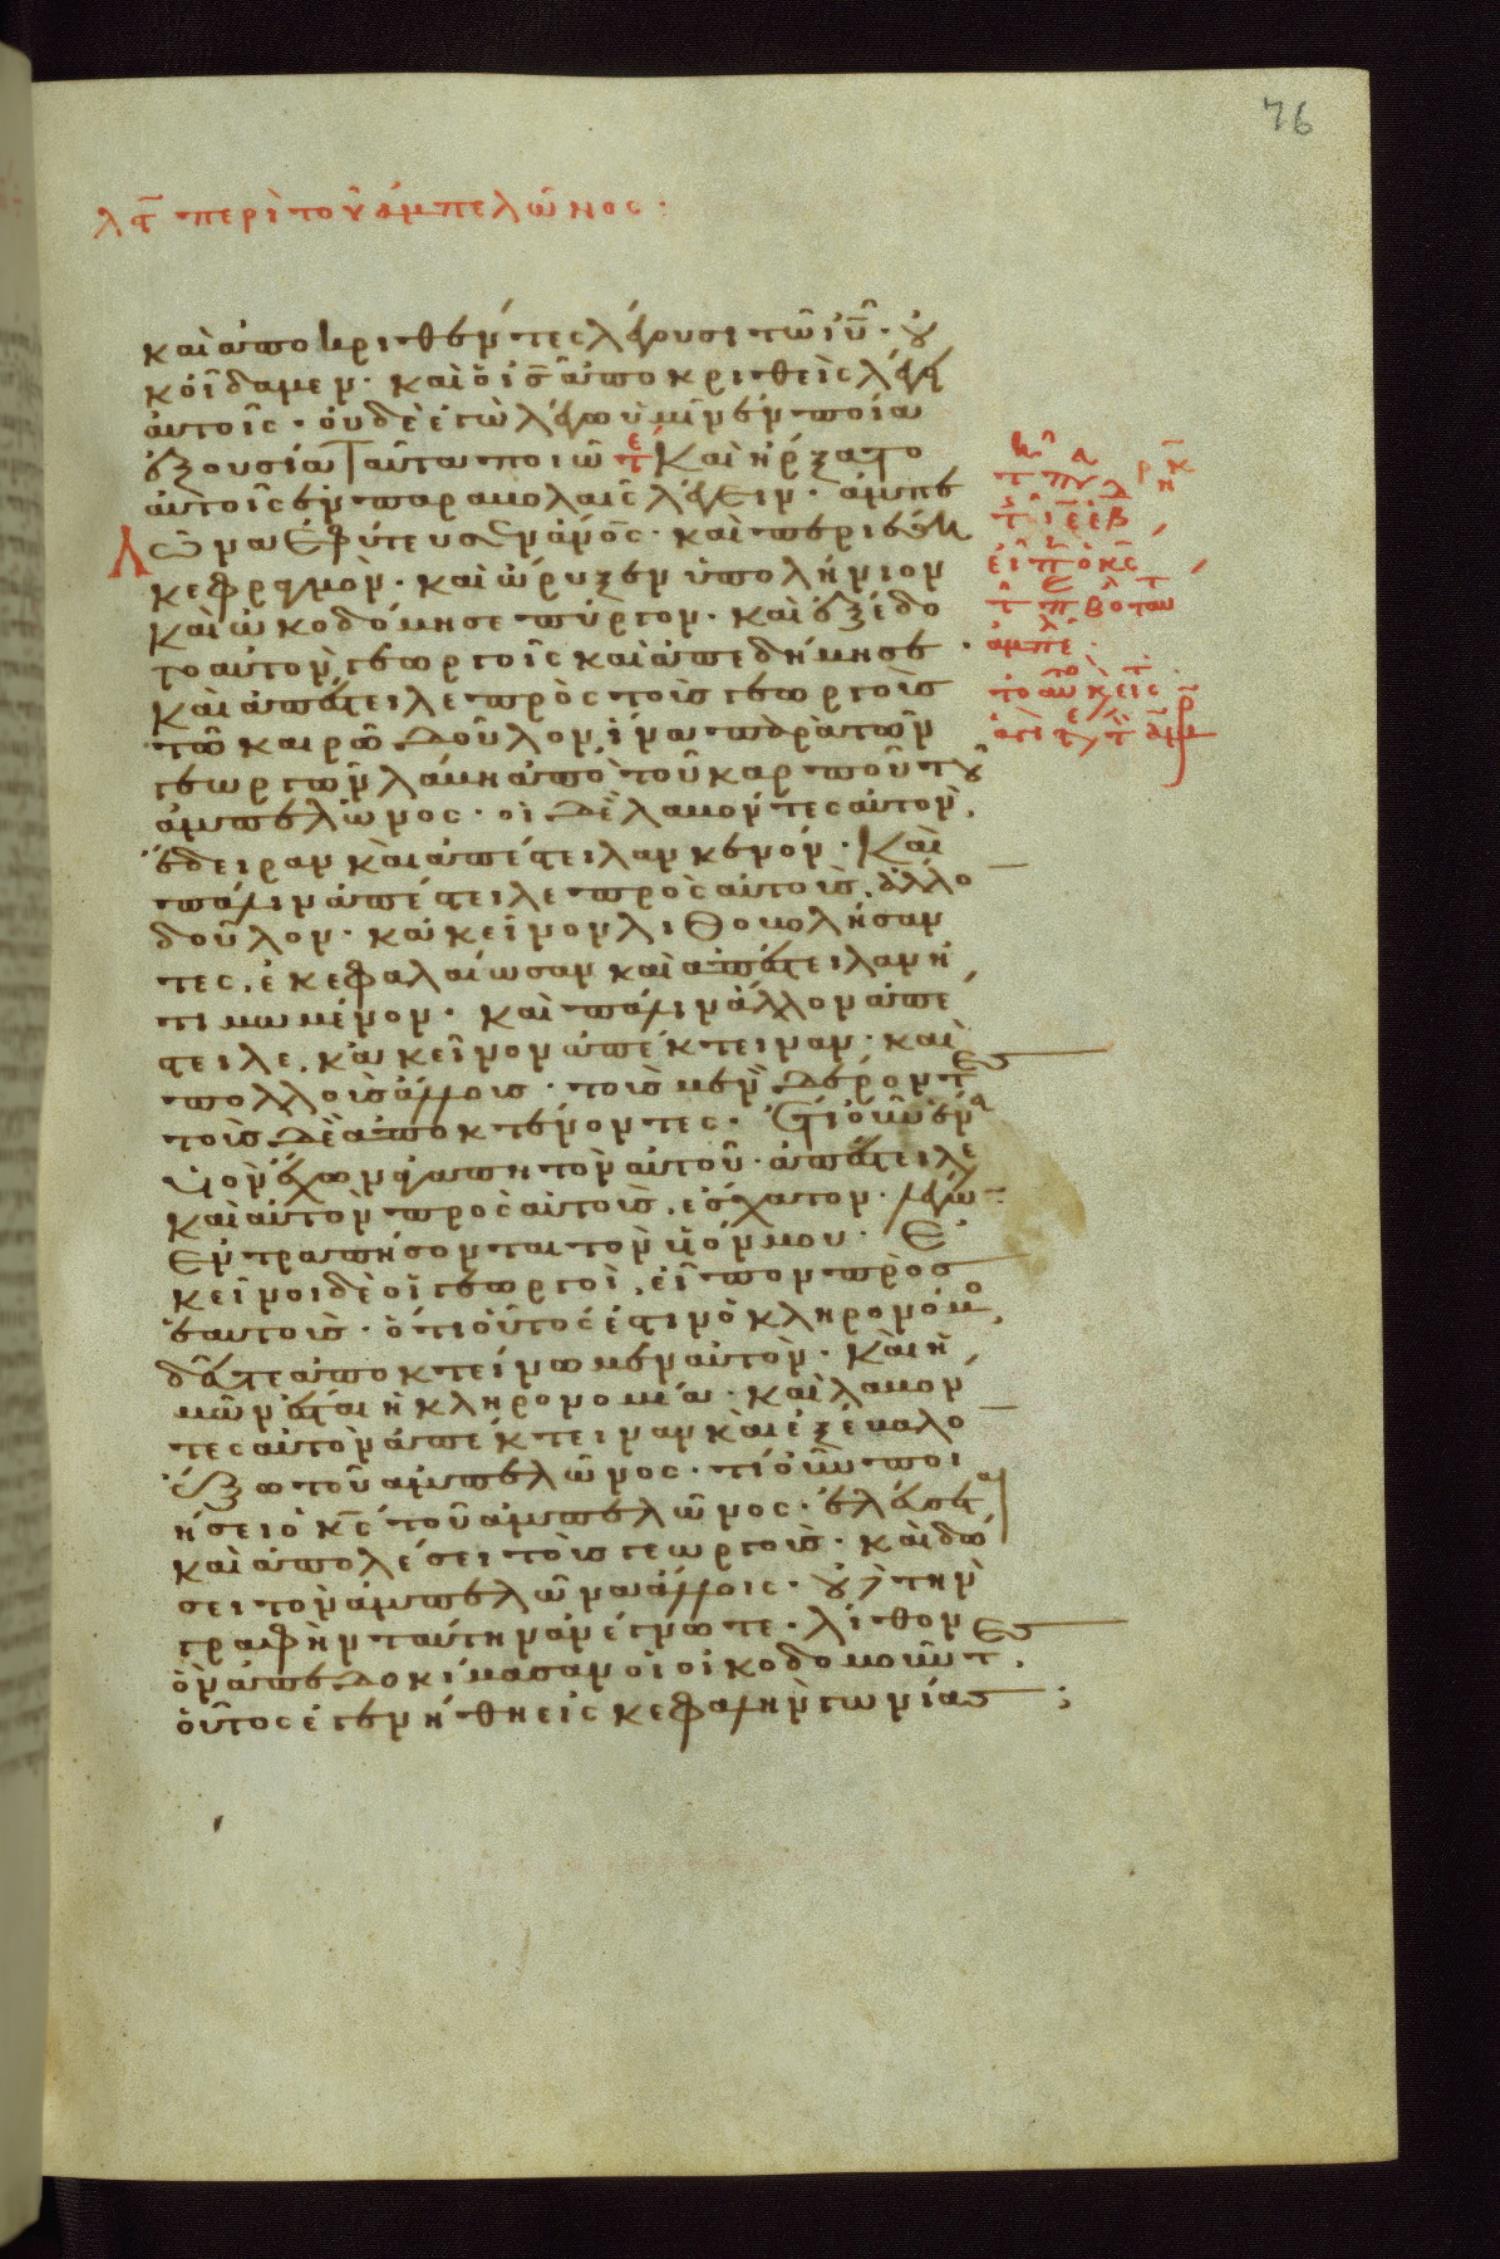 76
λϛ περὶ τοῦ ἀμπελῶνος:
καὶ ἀποκριθέντες λέγουσι τῶ ιυ̅· οὐ
κ οἴδαμεν· καὶ ὁ ις̅ ἀποκριθεὶς λέγει
αὐτοῖς· οὐδὲ ἐγὼ λέγω ὑμῖν ἐν ποία
ἐξουσία ταῦτα ποιῶ τε Καὶ ἠρξατο
αὐτοῖς ἐν παραβολαῖς λέγειν· ἀμπε
λῶνα ἐφύτευσεν ἄνο̅ς· καὶ περιέθη
κε φραγμὸν· καὶ ὠρυξεν ὑπολήνιον
καὶ ὠκοδόμησε πύργον· καὶ ἐξέδο
το αὐτὸν γεωργοῖς καὶ ἀπεδήμησε·
καὶ ἀπέστειλε πρὸς τοὺς γεωργοὺς
τῶ καιρῶ δοῦλον ἵνα παρὰ τῶν
γεωργῶν λάβη ἀπὸ τοῦ καρποῦ τοῦ
ἀμπελῶνος· οἱ δὲ λαβόντες αὐτὸν,
ἔδειραν καὶ ἀπέστειλαν κενόν· Καὶ
πάλιν ἀπέστειλε πρὸς αὐτοὺς, ἄλλο
δοῦλον· κακεῖνον λιθοβολήσαν
τες, ἐκεφαλαίωσαν καὶ ἀπέστειλαν ἠ
τιμωμένον· καὶ πάλιν ἄλλον ἀπέ
στειλε, κακεῖνον ἀπέκτειναν· καὶ
πολλοὺς ἄλλους· τοὺς μὲν δέροντες
τοὺς δὲ ἀποκτένοντες· Ἔτι οὖν ἕνα
υἱὸν ἔχων ἀγαπητὸν αὐτοῦ· ἀπέστειλε
καὶ αὐτὸν πρὸς αὐτοὺς, ἔσχατον· λέγων
ἐντραπήσονται τὸν υἱόν μου· Ἐ
κεῖνοι δὲ οἱ γεωργοὶ, εἶπον πρὸς
ἑαυτοὺς· ὅτι οὗτός ἐστιν ὁ κληρονόμο,
δεῦτε ἀποκτείνωμεν αὐτὸν· καὶ ἡ
μῶν ἔσται ἡ κληρονομία· καὶ λαβον
τες αὐτὸν ἀπέκτειναν καὶ ἐξέβαλο
ἔξω τοῦ ἀμπελῶνος· τί οὖν ποι
ήσει ὁ κς̅ τοῦ ἀμπελῶνος· ἐλεύσεται
καὶ ἀπολέσει τοὺς γεωργοὺς· καὶ δώ
σει τὸν ἀμπελῶνα ἄλλοις· οὐδὲ τὴν
γραφὴν ταύτην ἀνέγνωτε· λίθον
ὃν ἀπεδοκίμασαν οἱ οἰκοδομοῦντες.
οὗτος ἐγενήθη εἰς κεφαλὴν γωνίας: